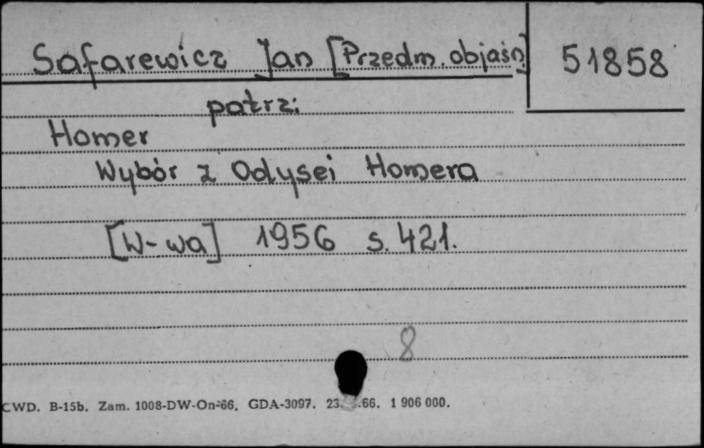 Safarewicz Jan [Przedm. objaśn] 51858
patrz:
Homer
Wybór z Odysei Homera
[W-wa] 1956 s. 421.
8
CWD. B-15b. Zam. 1008-DW-On-66. GDA-3097. 23. .66. 1 906 000.